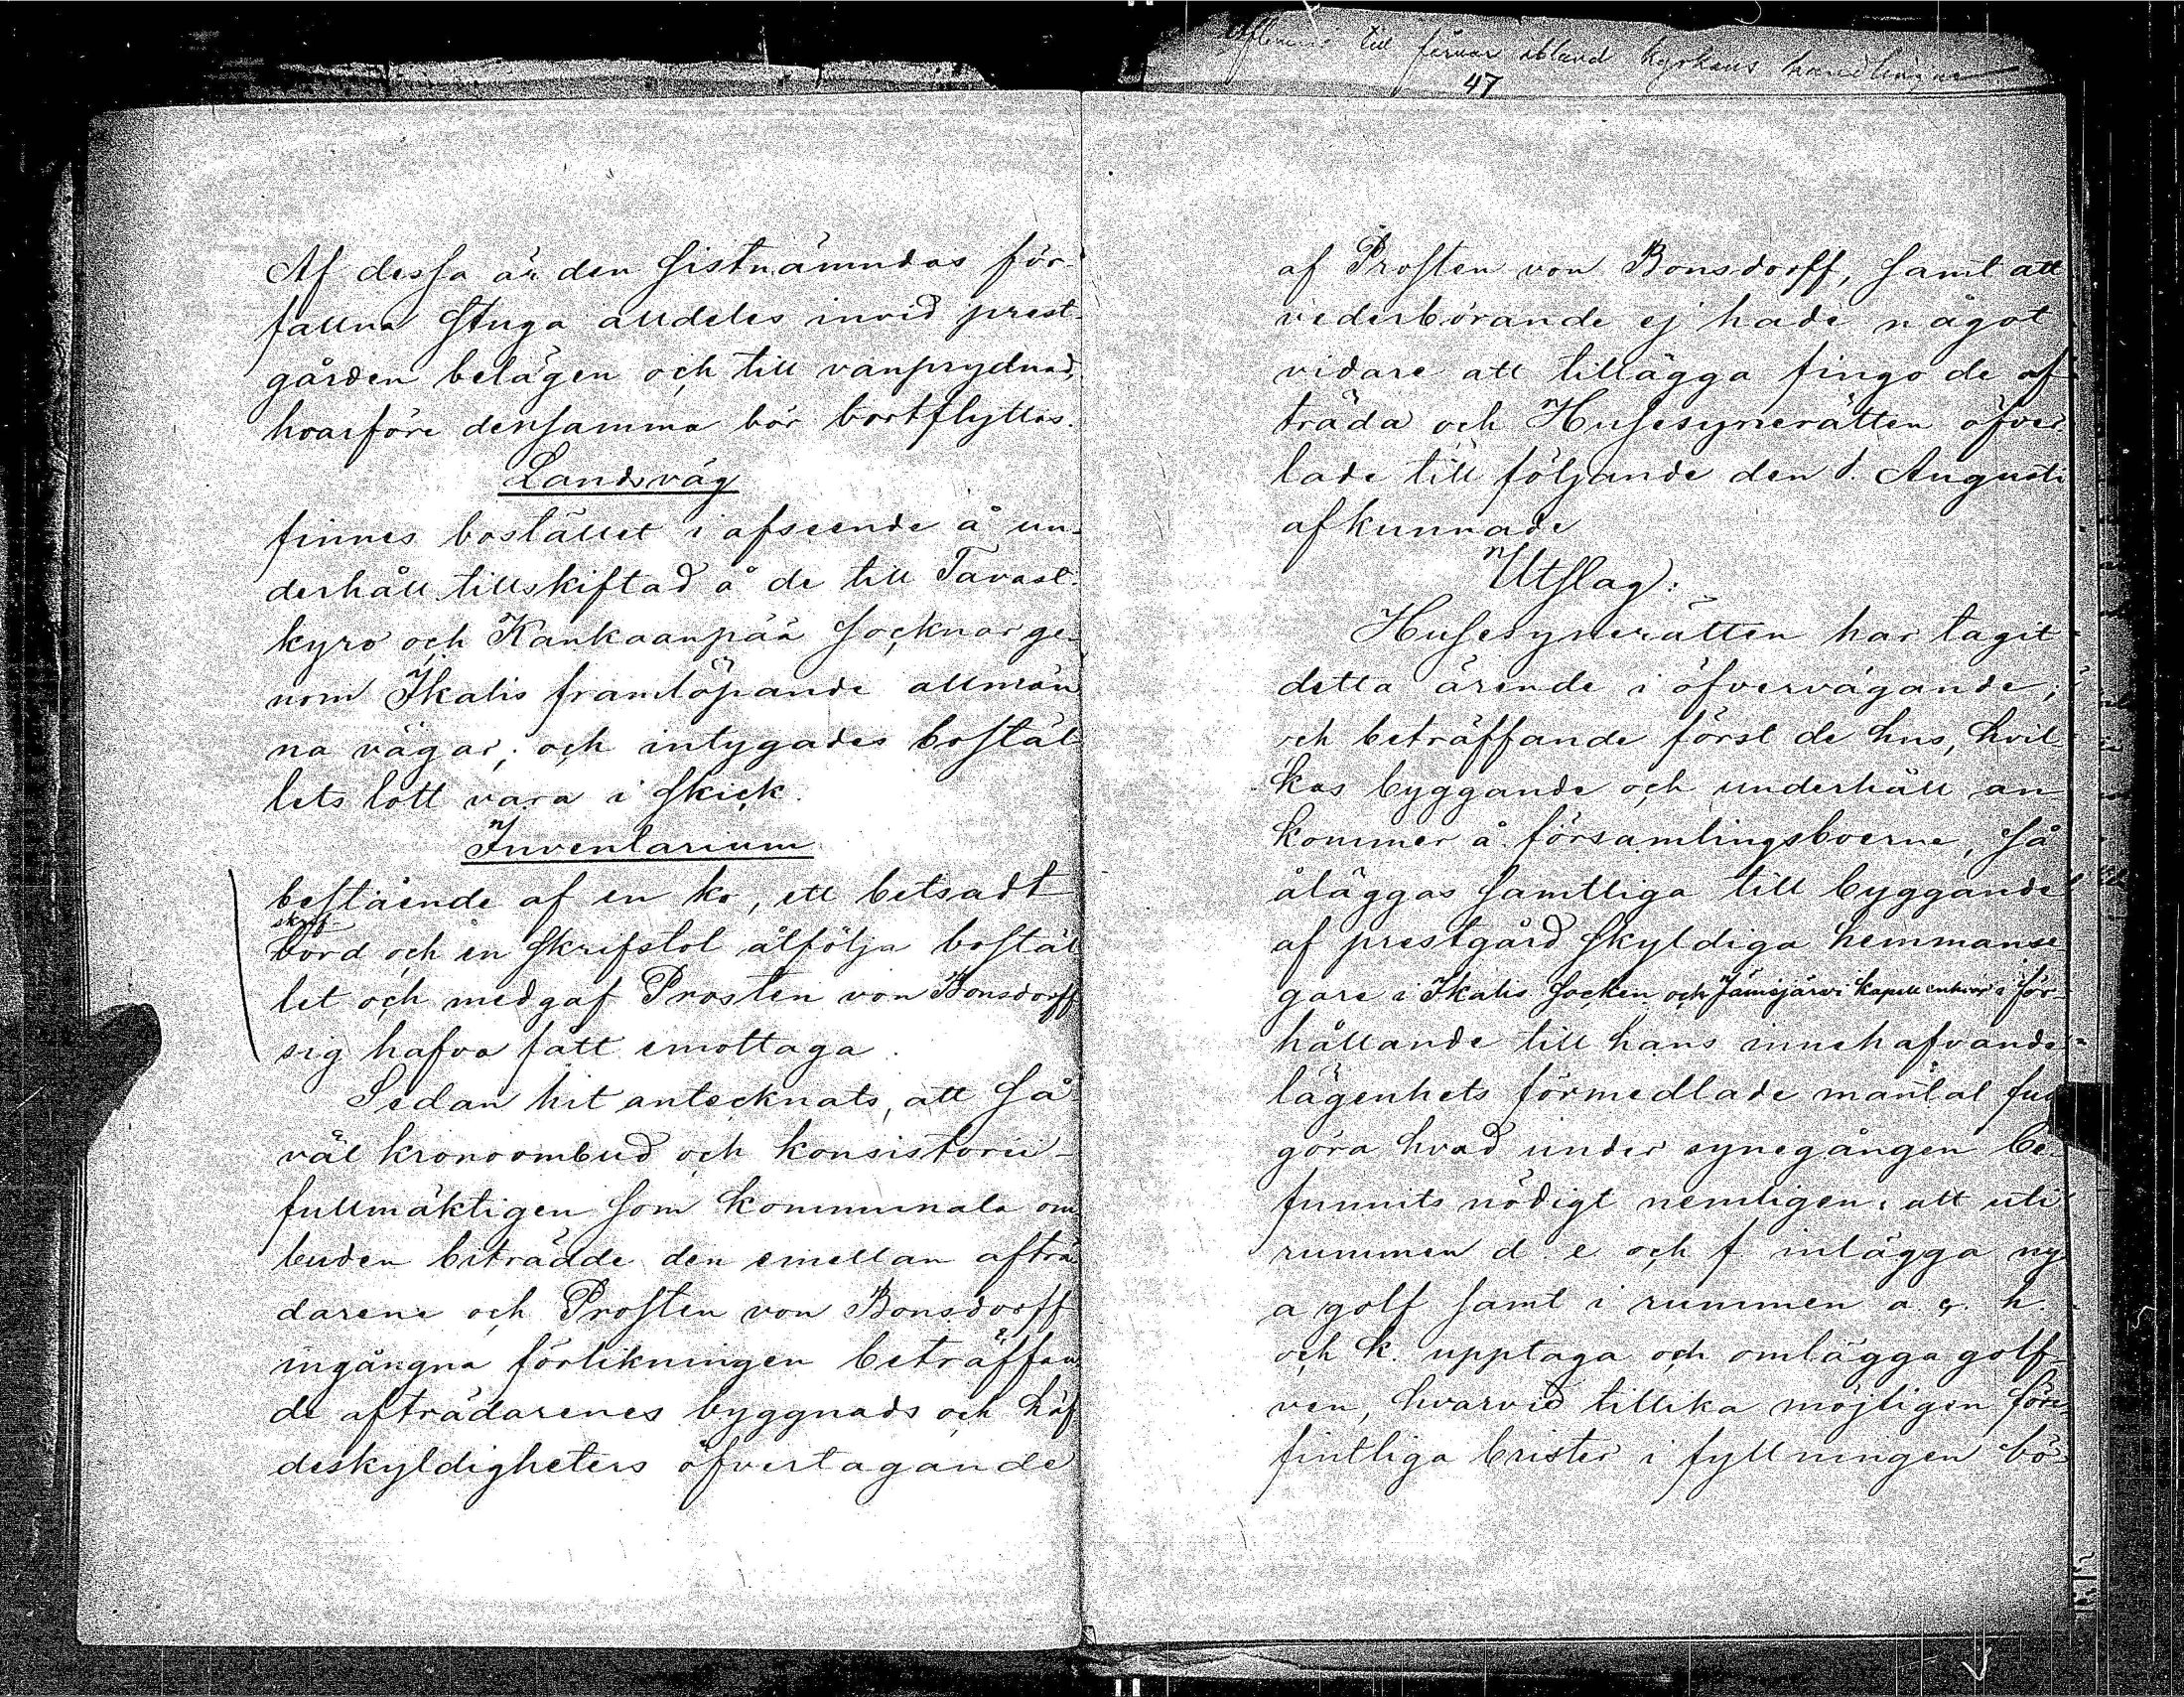 till förvar ibland kyrkans handlingar
47
Af dessa är den sistnämndas för-
fallna stuga alldeles invid prest-
gården belägen och till vanprydnad,
hvarföre densamma bör bortflyttas.
Landsväg
finnes bostället i afseende å un-
derhåll tillskiftad å de till Tavast-
kyro och Kankaanpää socknar ge-
nom Ikalis framlöpande allmän
na vägar; och intygades bostäl
lets lott vara i skick.
Inventarium
bestående af en ko, ett betsadt
skrif
bord och en skrifstol åtfölja bostäl
let och medgaf Prosten von Bonsdorff
sig hafva fått emottaga.
Sedan hit antecknats, att så
väl kronoombud och konsistorii-
fullmäktigen som kommunala om
buden biträdde den emellan afträ
darene och Prosten von Bonsdorff
ingångna förlikningen beträffan
de afträdarenes byggnads och häf
deskyldigheters öfvertagande
af Prosten von Bonsdorff, samt att
vederbörande ej hade något
vidare att tillägga fingo de af
träda och Husesynerätten öfver-
lade till följande den 1. Augusti
afkunnade
Utslag:
Husesynerätten har tagit
detta ärende i öfvervägande;
och beträffande först de hus, hvil
kas byggande och underhåll an
kommer å församlingsboerne, så
åläggas samtliga till byggande
af prestgård skyldiga hemmanse
gare i Ikalis socken och Jämijärvi kapell enhvar i för-
hållande till hans innehafvande
lägenhets förmedlade mantal full
göra hvad under synegången be-
funnits nödigt nemligen: att uti
rummen d. e och f inlägga ny
a golf samt i rummen a g. h.
och k. upptaga och omlägga golf-
ven, hvarvid tillika möjligen före-
fintliga brister i fyllningen bö-